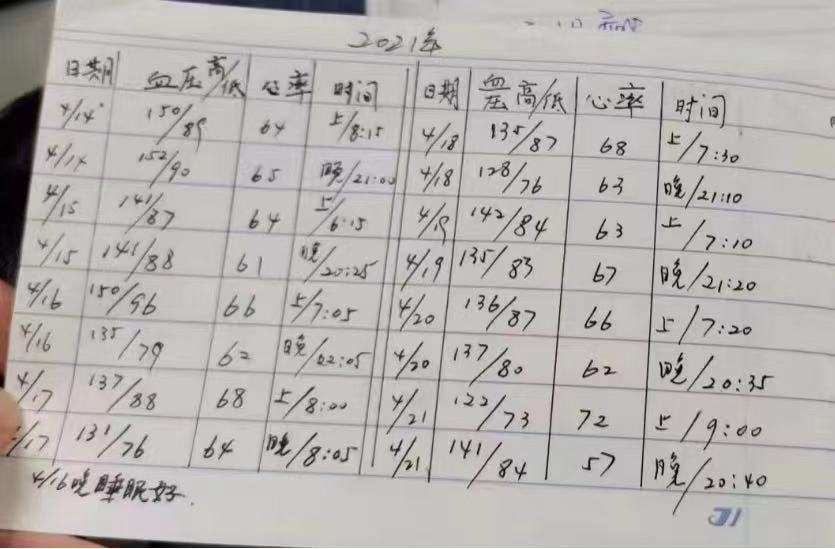 2021年
日期 血压高/低 心率 时间
4/14 150/89 64 上/8:15
4/14 152/90 65 晚/21:00
4/15 141/87 64 上/6:15
4/15 141/88 61 晚/20:25
4/16 150/96 66 上/7:05
4/16 135/79 62 晚/22:05
4/17 137/88 68 上/8:00
4/17 131/76 64 晚/8:05
4/16晚睡眠好.
日期 血压高/低 心率 时间
4/18 135/87 68 上/7:30
4/18 128/76 63 晚/21:10
4/19 142/84 63 上/7:10
4/19 135/83 67 晚/21:20
4/20 136/87 66 上/7:20
4/20 137/80 62 晚/20:35
4/21 122/73 72 上/9:00
4/21 141/84 57 晚/20:40